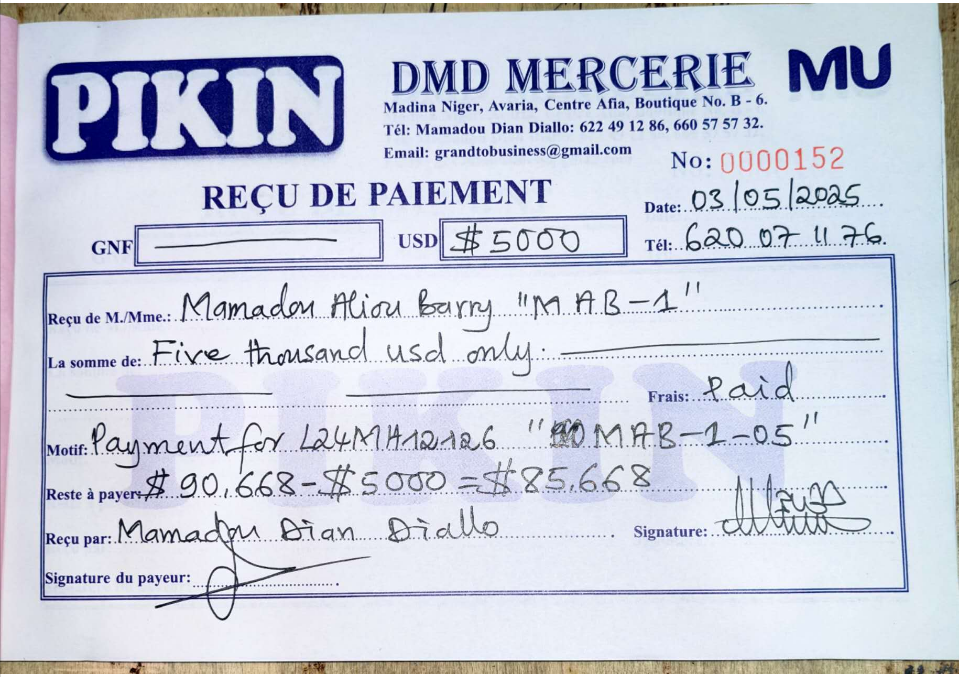 PIKIN
DMD MERCERIE MU
Madina Niger, Avaria, Centre Afia, Boutique No. B - 6.
Tél: Mamadou Dian Diallo: 622 49 12 86, 660 57 57 32.
Email: grandtobusiness@gmail.com
No: 0000152
REÇU DE PAIEMENT
Date: 03/05/2025
GNF
USD $ 5000
Tél: 620 07 11 76.
Reçu de M./Mme.: Mamadou Aliou Barry "MAB-1"
La somme de: Five thousand usd only.
Frais: Paid
Motif: Payment for L24MH12126 "MAB-1-05"
Reste à payer: $ 90.668 - $5000 = $85.668
Reçu par: Mamadou Dian Diallo
Signature:
Signature du payeur:
PIKIN